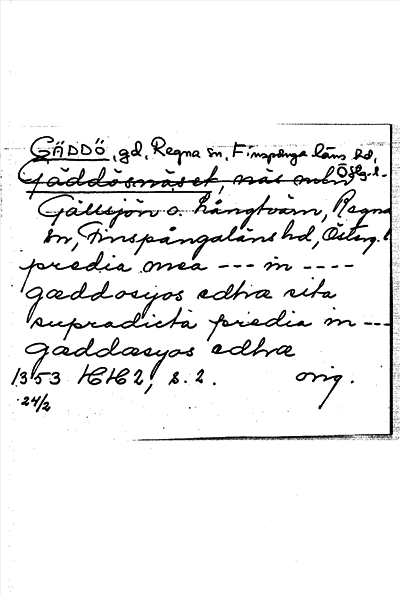 GÄDDÖ, gd, Regna sn, Finspånga läns hd,
Östg. l.
Gäddösnäset, näs mln
Gällsjön o. Långtvärn, Regna
sn, Finspångaläns hd, Österg. l
predia mea --- in ----
gæddosyos edhræ sita
supradicta predia in ---
gæddæsyos edhræ
1353 HH2, s. 2. orig.
24/2